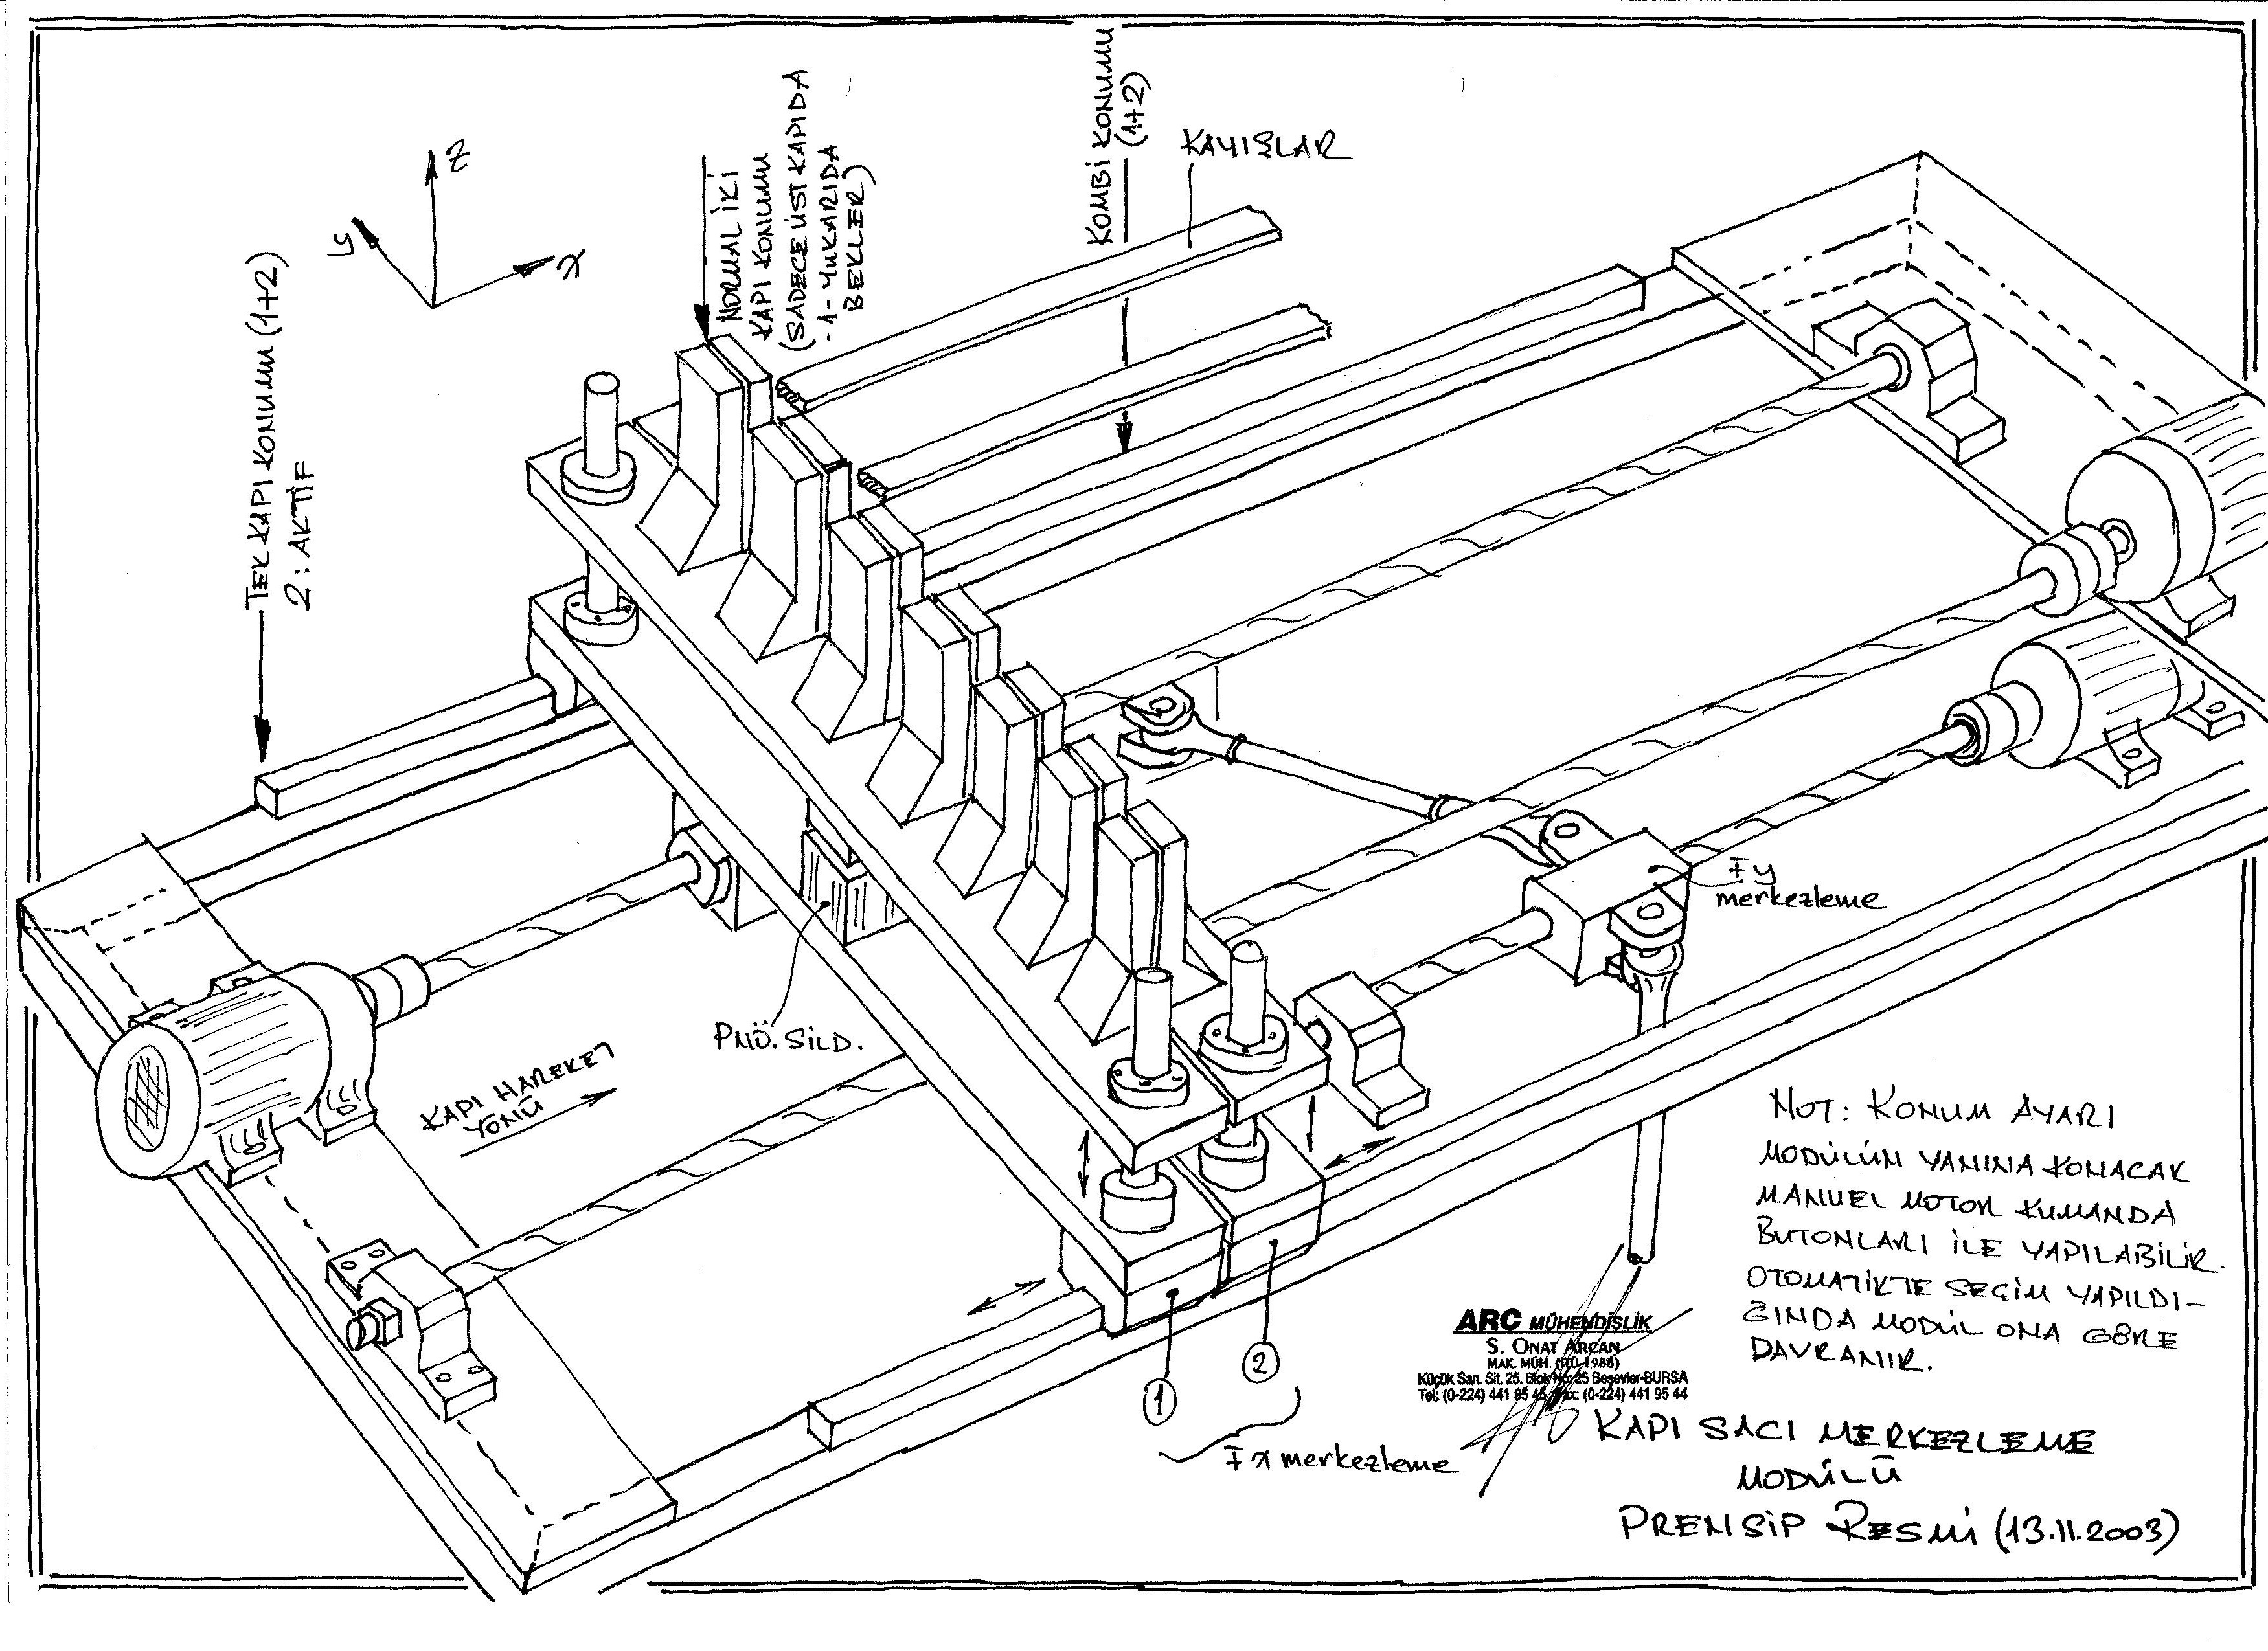 Z
y
x
TEK KAPI KONUMU (1+2)
2: AKTİF
NORMAL İKİ
KAPI KONUMU
(SADECE ÜST KAPIDA
.1- YUKARIDA
BEKLER)
KOMBİ KONUMU
(1+2)
KAYIŞLAR
PNÖ. SİLD.
KAPI HAREKET
YÖNÜ
∓ y
merkezleme
1
2
∓ x merkezleme
NOT: KONUM AYARI
MODÜLÜN YANINA KONACAK
MANUEL MOTOR KUMANDA
BUTONLARI İLE YAPILABİLİR.
OTOMATİKTE SEÇİM YAPILDI-
ĞINDA MODÜL ONA GÖRE
DAVRANIR.
ARC MÜHENDİSLİK
S. ONAT ARCAN
MAK. MÜH. (İTÜ-1988)
Küçük San. Sit. 25. Blok No: 25 Beşevler-BURSA
Tel: (0-224) 441 95 45 Fax: (0-224) 441 95 44
KAPI SACI MERKEZLEME
MODÜLÜ
PRENSİP RESMİ (13.11.2003)